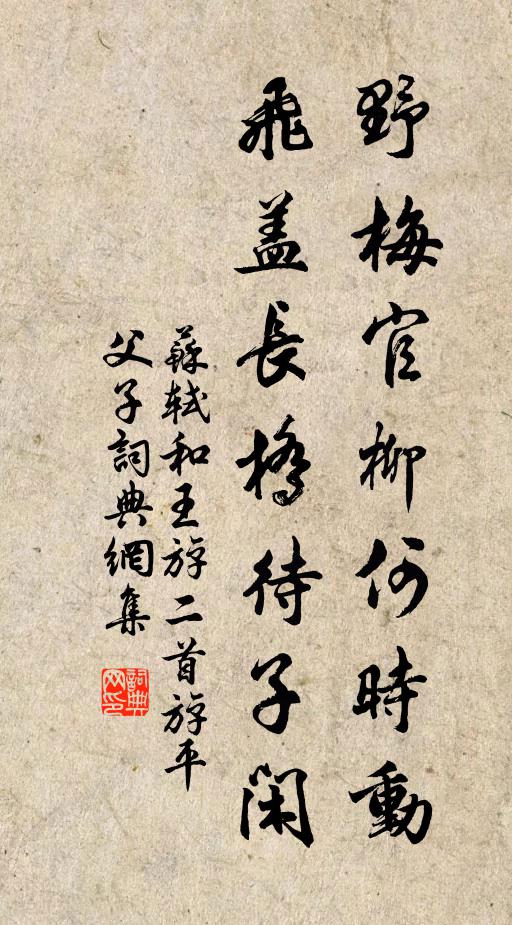 野梅官柳何時動
飛盖長橋待子閑
蘇軾和王斿二首斿平
父子詞典網集
詞典网印